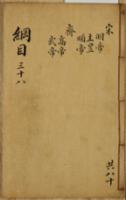 宋
明帝
主昱
順帝
齊
高帝
武帝
綱目 三十八
共八十